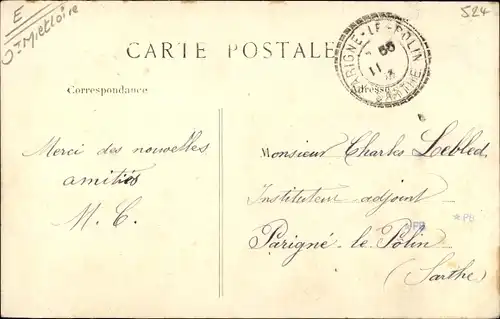 E
Mietloire
524
CARTE POSTALE
PARIGNÉ-LE-POLIN
SARTHE
11
Correspondance
Adresse
Merci des nouvelles
amitiés
M. C.
Monsieur Charles Lebled
Instituteur adjoint
*PB
*PB
Parigné-le-Polin
(Sarthe)